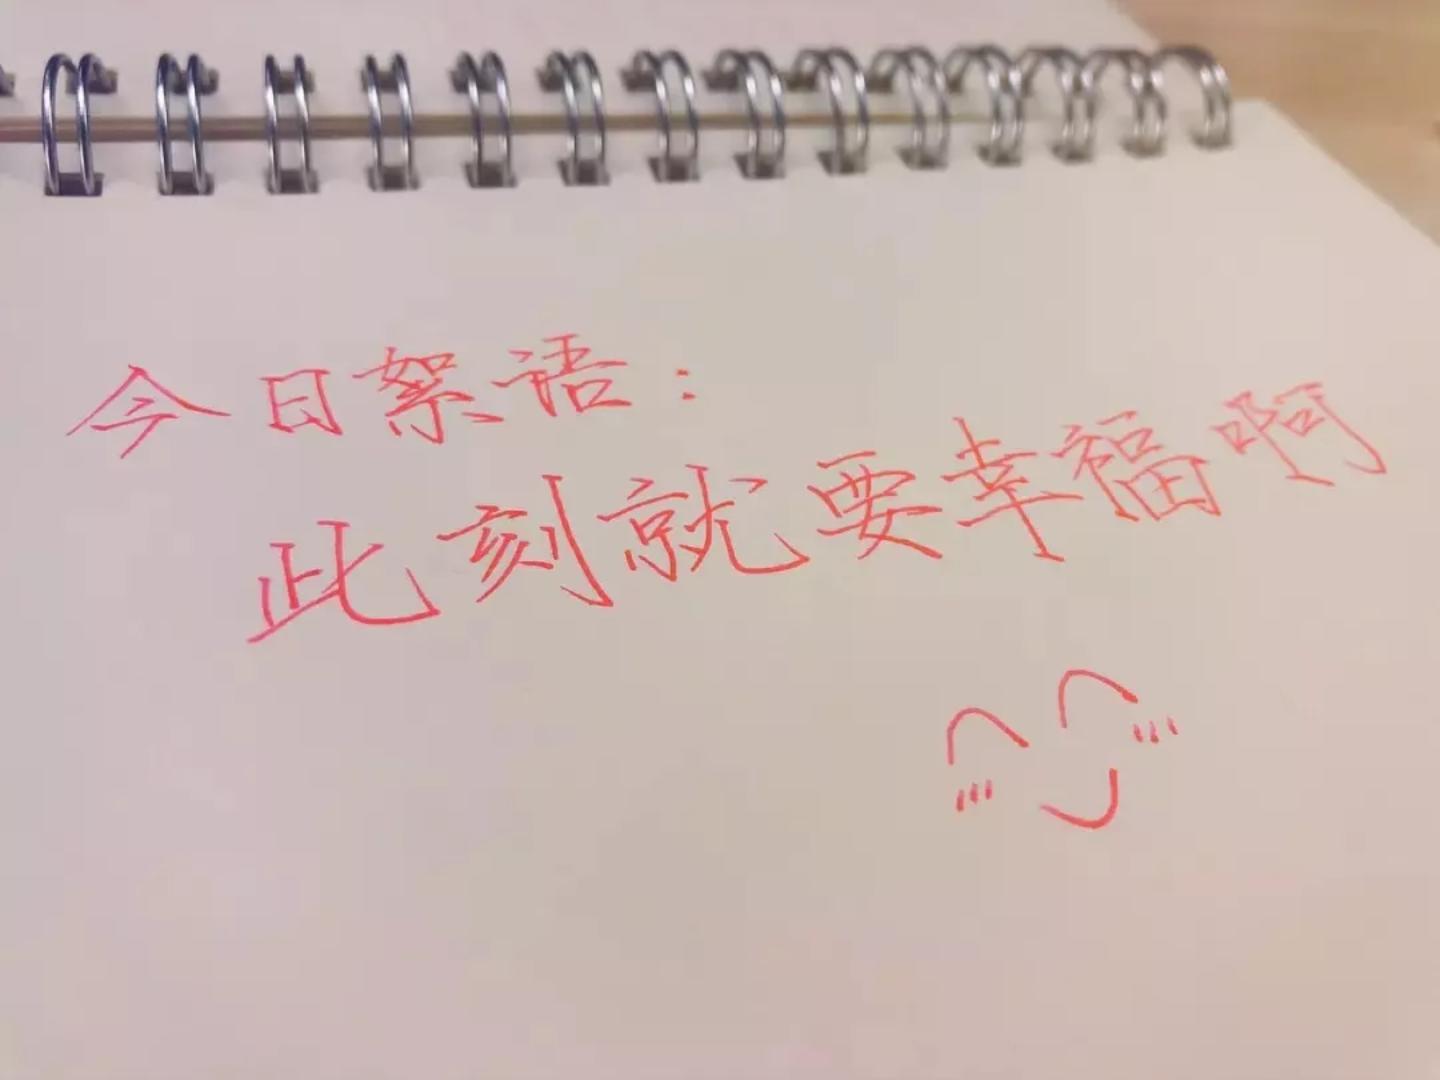 今日絮语：
此刻就要幸福啊